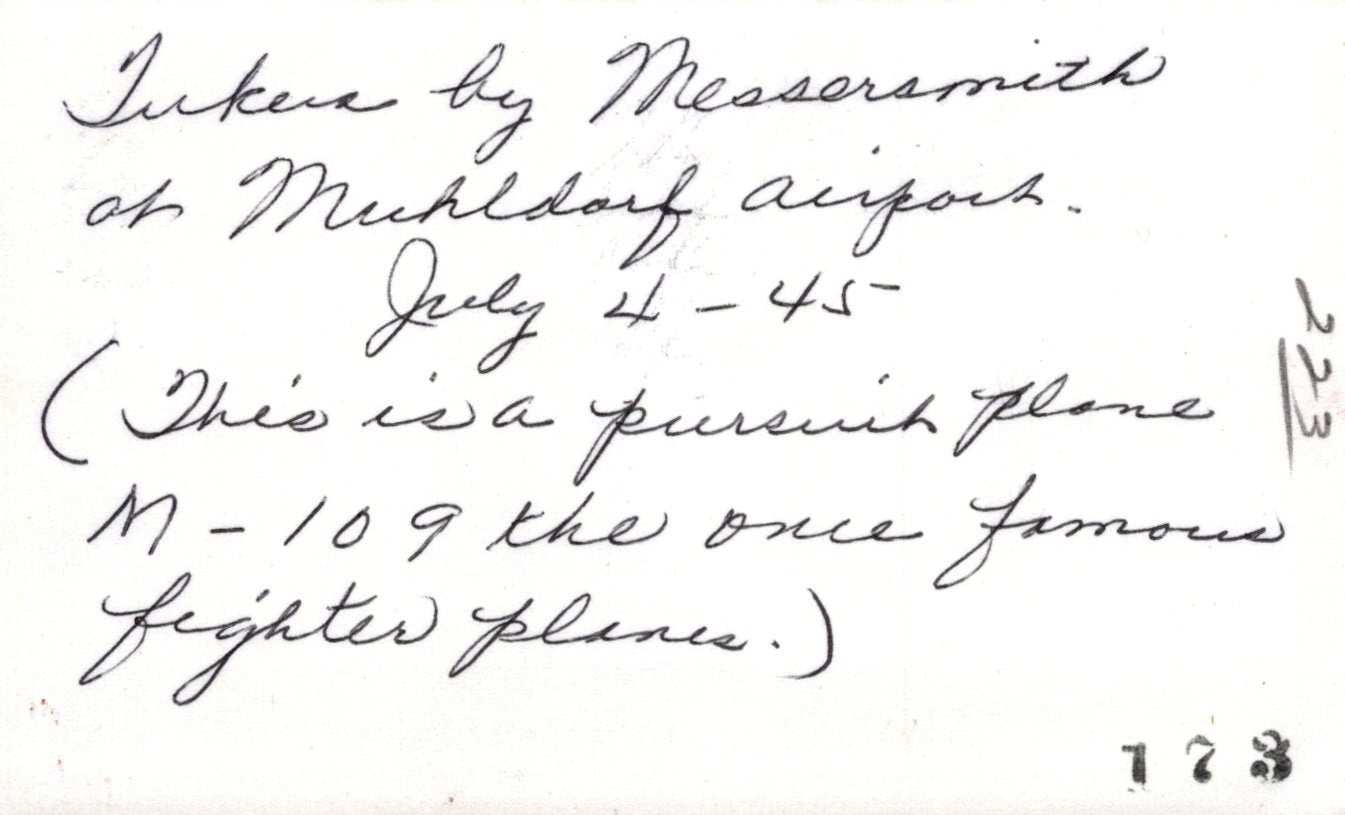 Tuken by Messersmith
at Muhldorf airport.
July 4-45
(This is a pursuit plane
M-109 the once famous
fighter planes.)
223
173